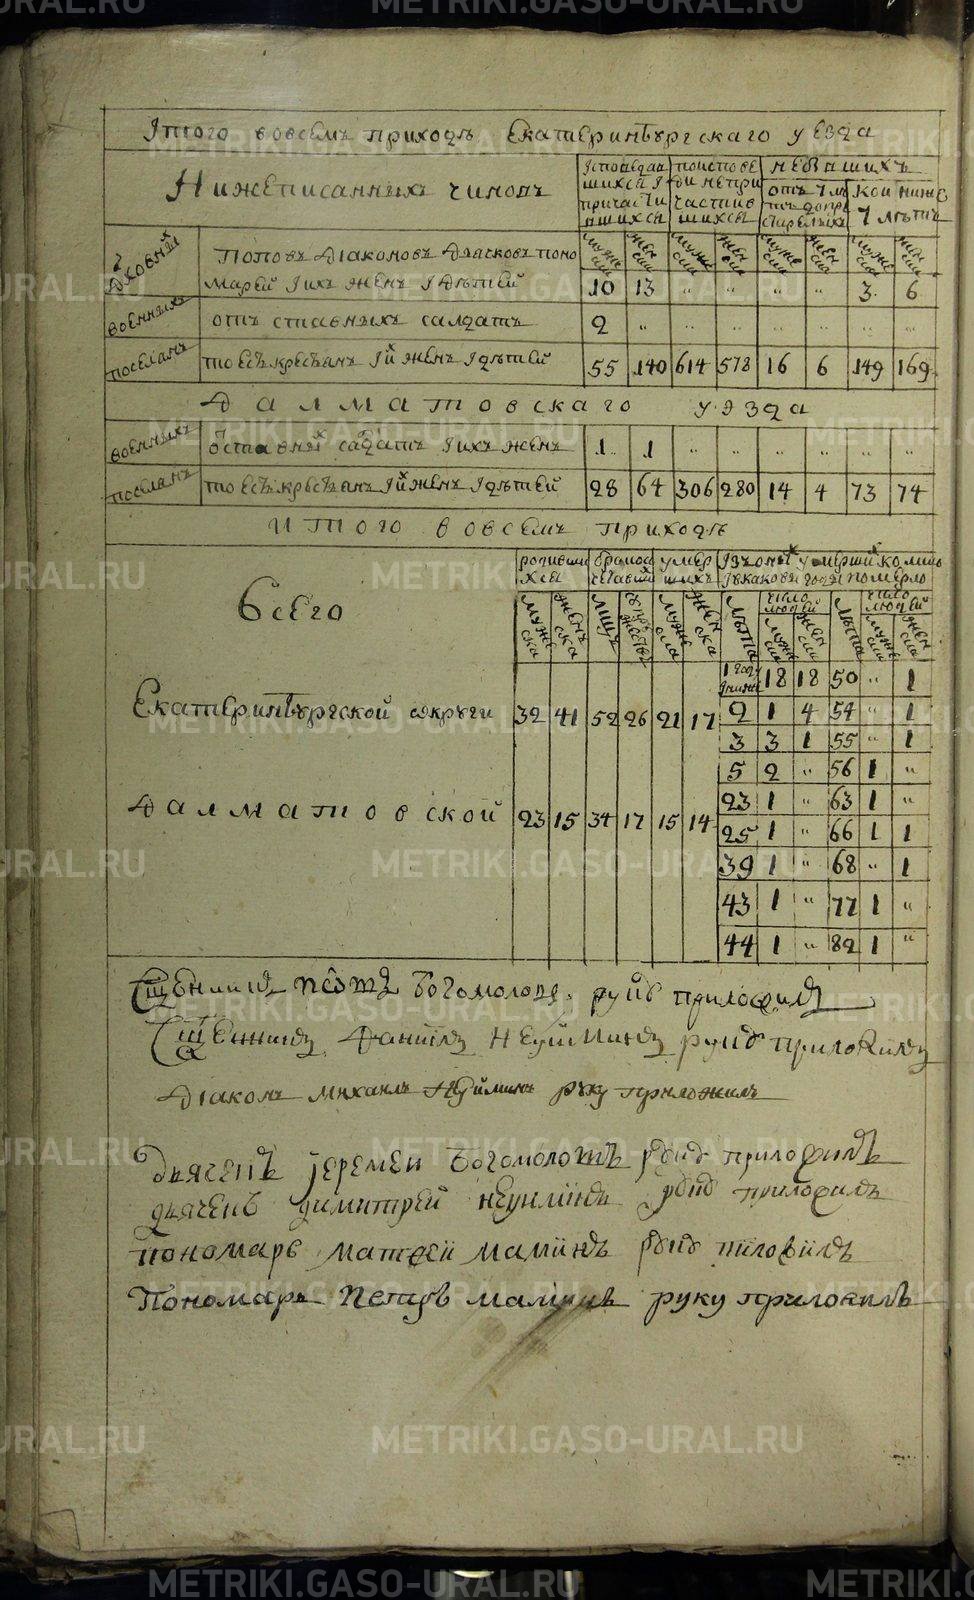 METRIKI.GASO-URAL.RU
Iтого вовсемъ приходѣ Екатеринбургскаго уезда
Нижеписанныхъ чиновъ
Iсповедав
шихся I
причасти
вшихся
поиспове
ди непри
частив
шихся
небывшихъ
отъ 7 лѣ
тъ допре
старелыхъ
кои ниже
7 лѣтъ
муже
ска
жен
ска
муже
ска
жен
ска
муже
ска
жен
ска
муже
ска
жен
ска
Дховныхъ
Поповъ Дiаконовъ Дьячковъ поно
марей Iихъ женъ Iдѣтей
10 13 " " " " 3 6
военныхъ
отъ ставныхъ салдатъ
2 " " " " " " "
поселянъ
тоесть крестьянъ Iй женъ Iдѣтей
55 140 614 578 16 6 149 169
Далматовскаго уѣзда
военныхъ
отставных салдатъ Iихъ женъ
1 1 " " " " " "
поселянъ
тоесть крестьянъ Iй женъ Iдѣтей
28 64 306 280 14 4 73 74
итого вовсемъ приходѣ
родивши
хся
бракосо
четавших
умер
шихъ
Iзъоных умерших колико
Iвкакови годы померло
Всего
муже
ска
женъ
ска
лицъ
супру
жествъ
муже
ска
жен
ска
лѣта
число
людей
муже
ска
жен
ска
лѣта
число
людей
муже
ска
жен
ска
1 году
Iниже 18 18 50 " 1
Екатеринбургской округи 32 41 52 26 21 17
2 1 4 54 " 1
3 3 1 55 " 1
5 2 " 56 1 "
23 1 " 63 1 "
Далматовской 23 15 34 17 15 14
25 1 " 66 1 1
39 1 " 68 " 1
43 1 " 77 1 "
44 1 " 82 1 "
Сщенникъ Петръ Богомоловъ руку приложилъ
Сщенникъ Данiилъ Неуйминъ руку приложилъ
Дiаконъ Михаилъ Неуйминъ руку приложилъ
Дьячекъ Iеремеи Богомоловъ руку приложилъ
дьячекъ димитрей неуиминъ руку приложилъ
пономарь матвей маминъ руку
Пономарь Петръ маминъ руку приложилъ